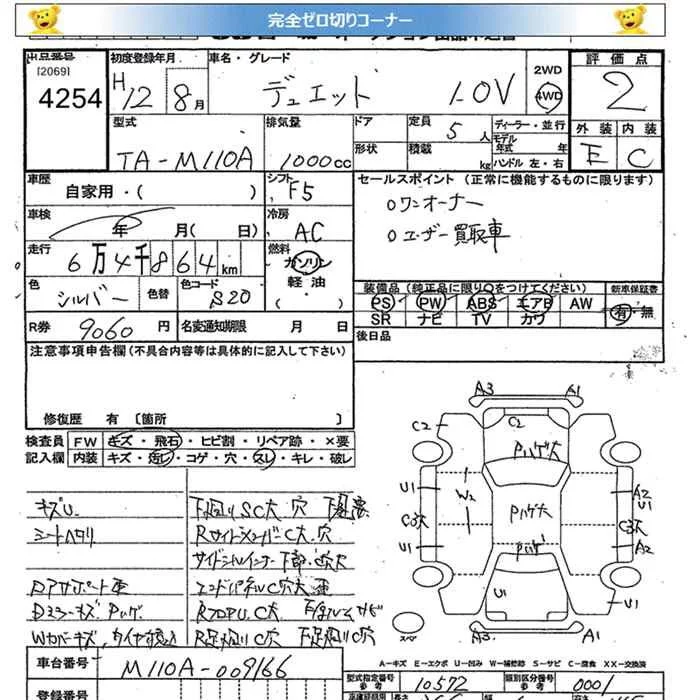 完全ゼロ切りコーナー
出品番号
[2069]
4254
初度登録年月
H12 8月
車名・グレード
デュエット 1.0V
2WD
4WD
評価点
2
型式
TA-M110A
排気量
1000cc
ドア
形状
定員 5人
積載 kg
ディーラー・並行
モデル年式 年
ハンドル 左・右
外装 内装
E C
車歴
自家用・( )
シフト
F5
セールスポイント (正常に機能するものに限ります)
○ワンオーナー
○ユーザー買取車
車検
年 月( 日)
冷房
AC
走行
6万4千864km
燃料
ガソリン
軽油
色
シルバー
色替
色コード
S20
装備品 (純正品に限り○をつけてください)
新車保証書
PS PW ABS エアB AW
有・無
SR ナビ TV カワ
R券 9060円
名変通知期限 月 日
後日品
注意事項申告欄(不具合内容等は具体的に記入して下さい)
修復歴 有 〔箇所 〕
検査員 FW キズ・飛石・ヒビ割・リペア跡・×要
記入欄 内装 キズ・汚レ・コゲ・穴・スレ・キレ・破レ
キズU
シートヘタリ
下廻りSC大、穴
RサイドシルC大、穴
エンドパネルC穴大
A3 A1
C2 C2
Pハゲ大
U1 W2 A2 U1
C3大 Pハゲ大 C3大
U1 Pハゲ A2
U1 U1
A3 A1
スペア
A-キズ E-エクボ U-凹み W-補修跡 S-サビ C-腐食 XX-交換済
車台番号
M110A-009166
登録番号
型式指定番号
参考
10572
類別区分番号
参考
0001